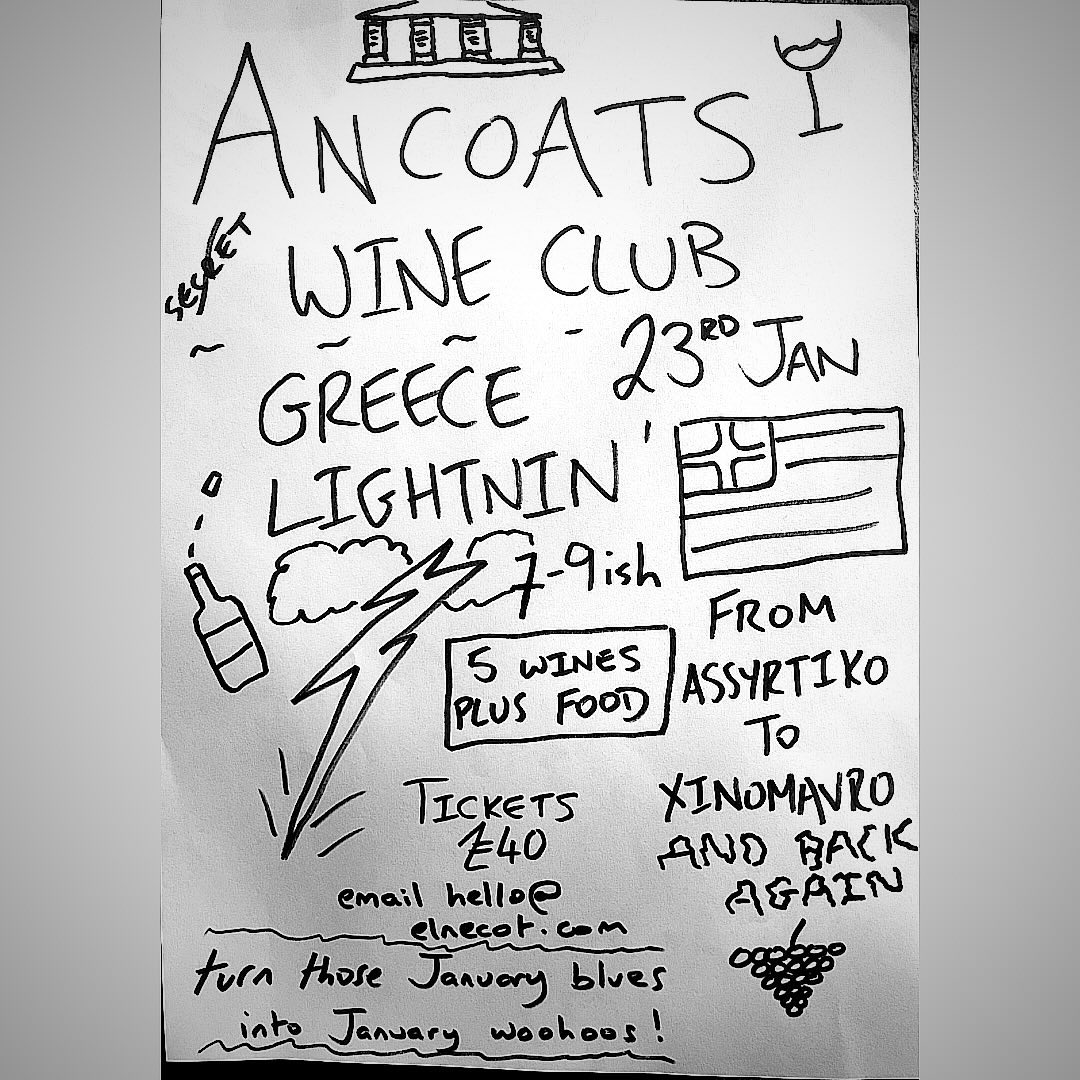 ANCOATS
SECRET
WINE CLUB
~ ~ ~ -
23RD JAN
GREECE
LIGHTNIN'
7-9ish
5 WINES
PLUS FOOD
FROM
ASSYRTIKO
TO
XINOMAVRO
AND BACK
AGAIN
TICKETS
£40
email hello@
elnecot.com
turn those January blues
into January woohoos!